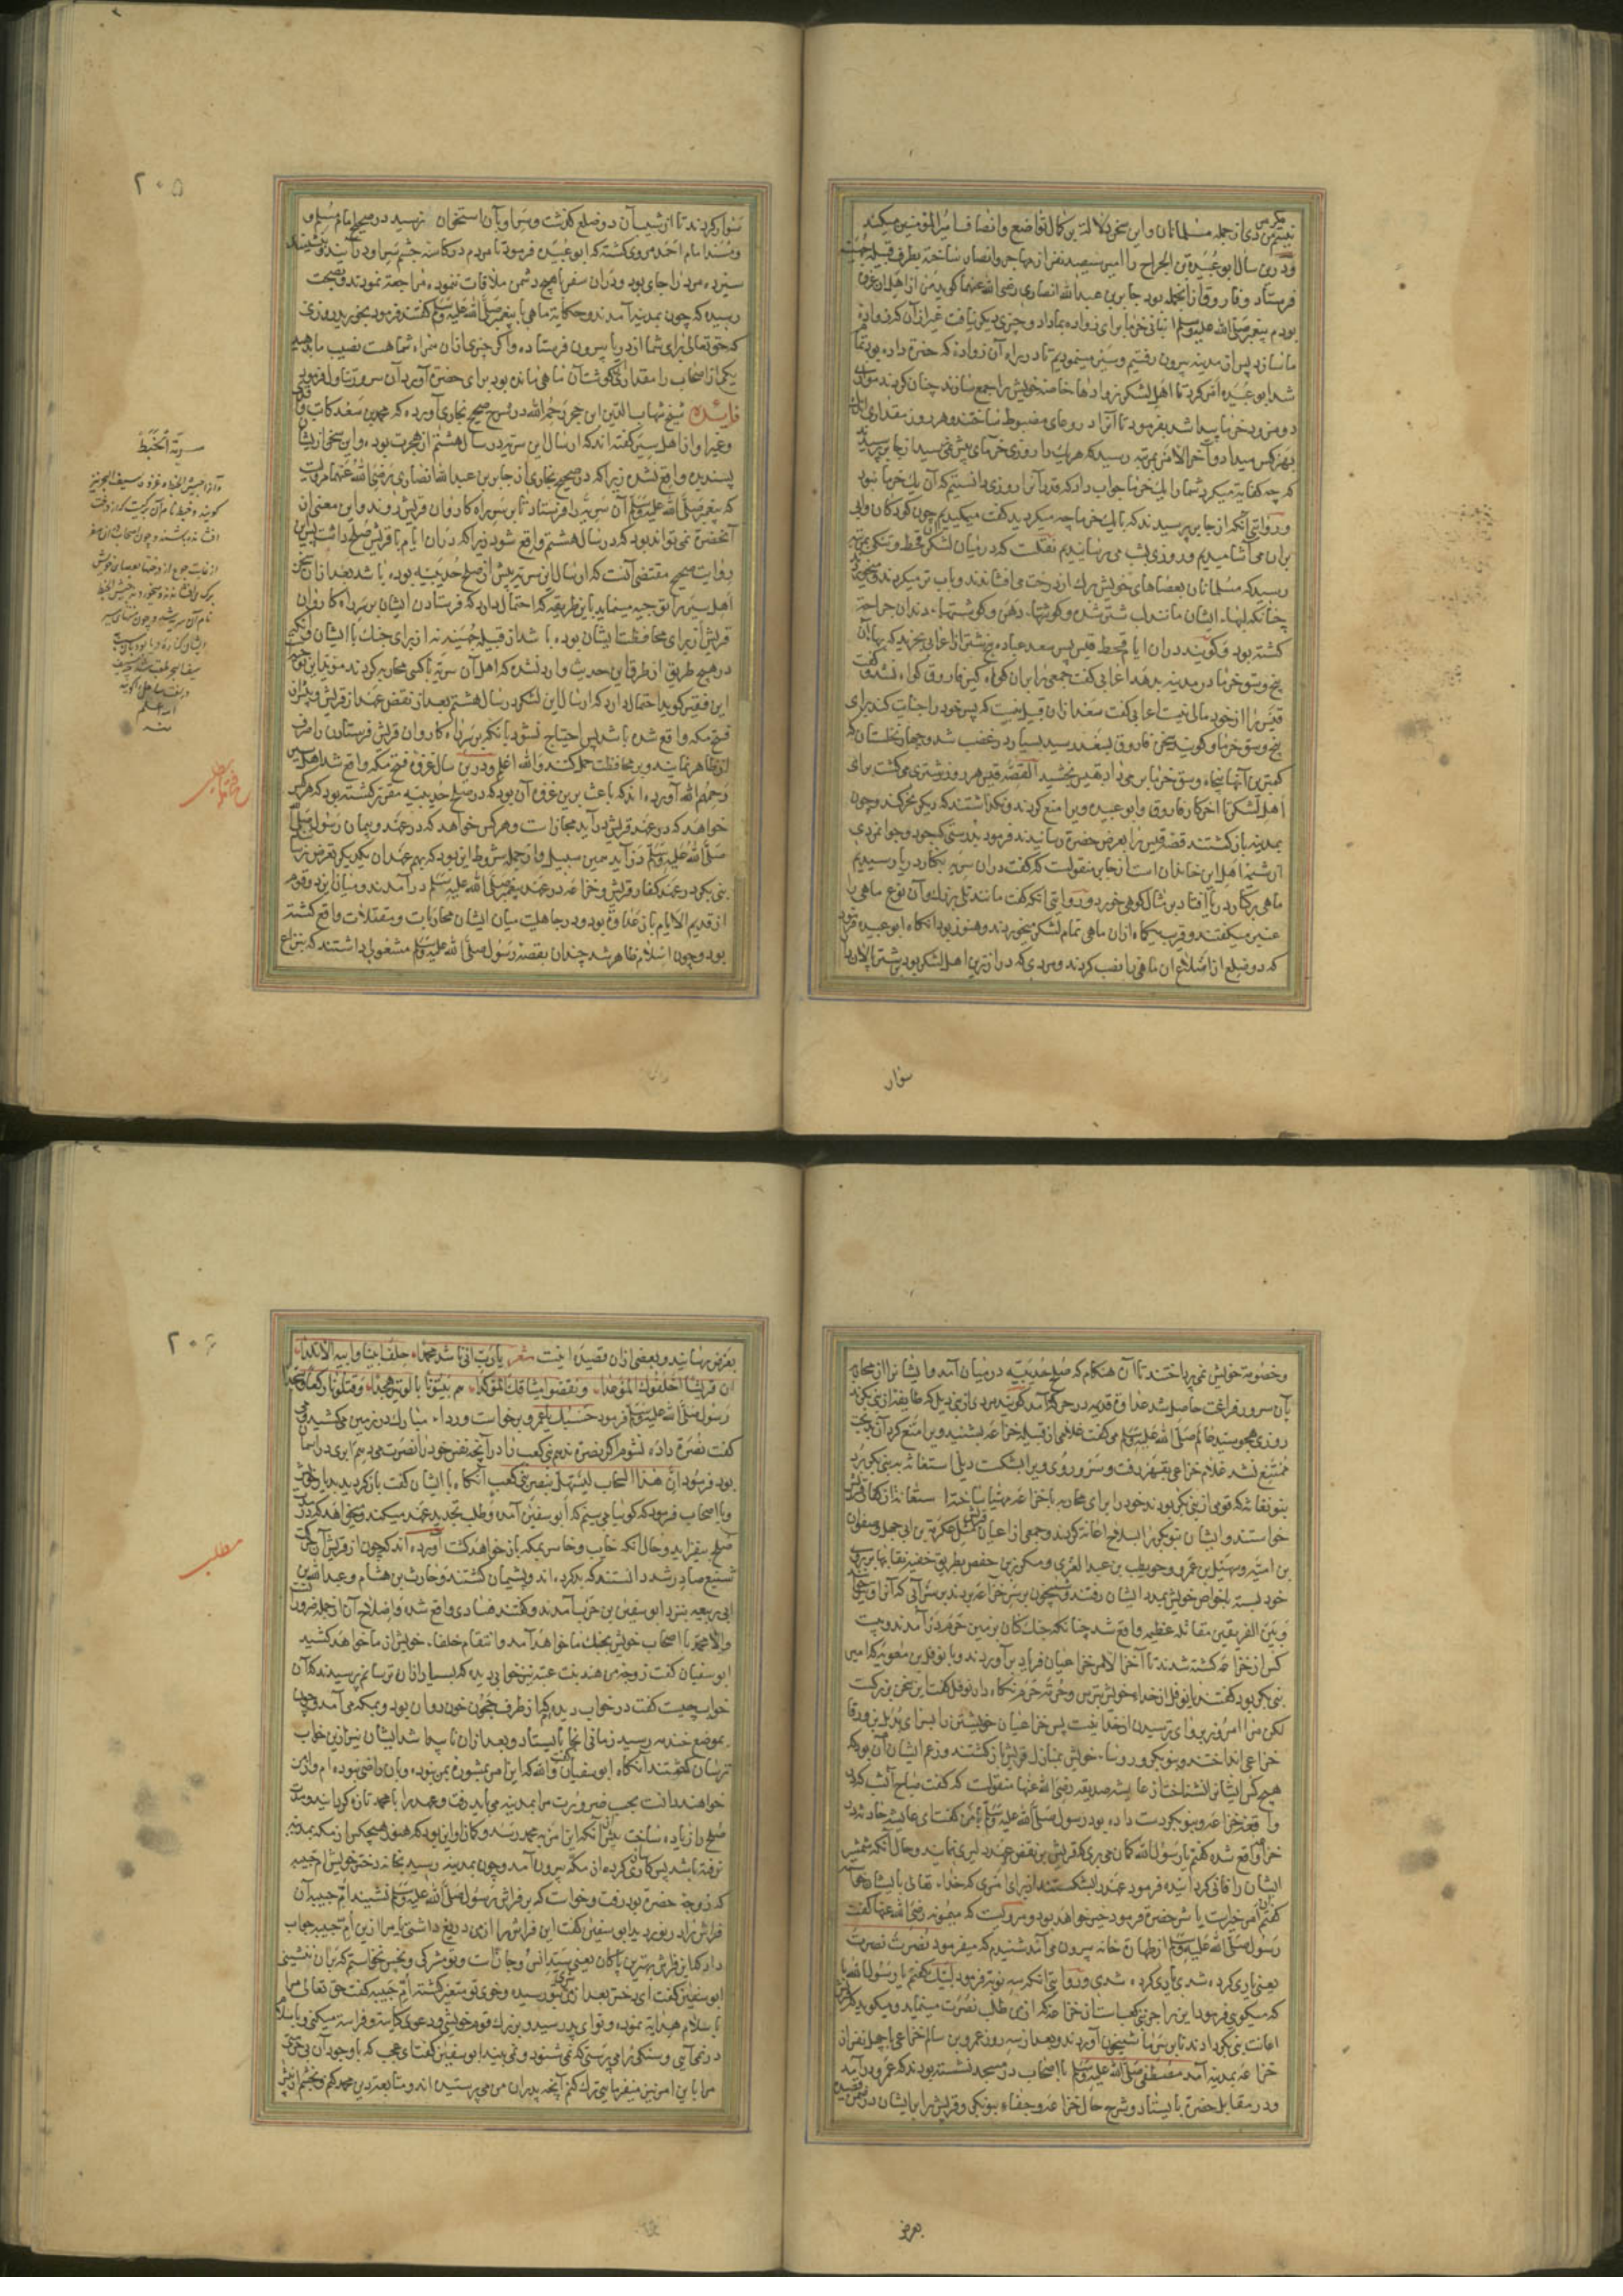 نیستم مگر مردی از جمله مسلمانان و این سخن دلالت بر کمال تواضع و انصاف امیر المؤمنین میکند
و درین سال ابو عبیده بن الجراح را امیر سیصد نفر از مهاجر و انصار ساخته بطرف قبیله جهینه
فرستاد و فاروق از انجمله بود جابر بن عبد الله انصاری رضی الله عنهما گوید من از اهل آن غزو
بودم پیغمبر صلی الله علیه وسلم انبانی خرما برای زواده بما داد و چیزی دیگر نیافت غیر از آن که زواده
ما سازد پس از مدینه بیرون رفتیم و سیر مینمودیم تا در راه آن زواده که حضرت داده بود تمام
شد ابو عبیده امر کرد تا اهل لشکر زوادها خاصه خویش را جمع سازند چنان کردند موازی
دو مزود خرما پیدا شد بفرمود تا آنرا در وعای مضبوط ساختند و هر روز مقداری اندک
بهر کس میداد و آخر الامر بمرتبه رسید که هر یک را روزی خرمای بیش نمی رسید از جابر پرسیدند
که چه کفایت میکرد شما را یک خرما جواب داد که قدر آنرا روزی دانستیم که آن یک خرما نبود
و روایتی آنکه از جابر پرسیدند که با یک خرما چه میکردید گفت میمکیدیم چون کودکان و آبی
بران می آشامیدیم و روزی بشب می رسانیدیم نقلست که در میان لشکر آن قحط و تنگی بمرتبه
رسید که مسلمانان بعصاهای خویش برک از درخت می افشاندند و بآب تر میکردند و میخوردند
چنانکه لبهاء ایشان مانند لب شتر شده و گوشهاء دهن و گوشتهاء دندان جراحت
کشته بود و گویند در ان ایام قحط قیس بن سعد عباده پنج شتر از اعرابی بخرید که بهاء آن
پنج وسق خرما در مدینه بدهد اعرابی گفت جمعی را بران گواه گیر فاروق گواه نشد و گفت
قیس را از خود مالی نیست اعرابی گفت سعد ازان قبیل نیست که پسر خود را خیانت کند برای
پنج وسق خرما و گویند سخن فاروق بسعد رسید بسیار در غضب شد و چهار نخلستان که
کمترین آنها پنجاه وسق خرما بر می داد بقیس بخشید القصه قیس هر روز شتری می کشت برای
اهل لشکر تا آخر کار فاروق و ابو عبیده ویرا منع کردند و نگذاشتند که دیگر نحر کند و چون
بمدینه باز گشتند قصه قیس را بعرض حضرت رسانیدند فرمود بدرستی که جود و جوانمردی
از شیمه اهل این خاندان است از جابر منقولست که گفت در ان سریه بکنار دریا رسیدیم
ماهی بر کنار دریا افتاد بر مثال کوهی خورد و روایتی آنکه گفت مانند تلی بزرک و آن نوع ماهی را
عنبر میگفتند و قریب یکماه ازان ماهی تمام لشکر میخوردند و هنوز بود انکاه ابو عبیده فرمود
که دو ضلع از اضلاع ان ماهی را نصب کردند و مردی که درازترین اهل لشکر بود بر شتر بالا ران
سوار
٢٠٥
سوار کردند تا از شیب آن دو ضلع گذشت و سر او بآن استخوان نرسید در صحیح امام مسلم و
و مسند امام احمد مروی گشته که ابو عبیده فرمود تا مردم در کاسه چشم سر او در آیند و بنشینند
سیزده مرد را جای بود و در ان سفر با هیچ دشمن ملاقات ننموده مراجعت نمودند و بصحت
رسیده که چون بمدینه آمدند و حکایت ماهی با پیغمبر صلی الله علیه وسلم گفتند فرمود بخورید روزی
که حق تعالی برای شما از دریا بیرون فرستاده و اگر چیزی ازان همراه شما هست نصیب ما بدهید
یکی از اصحاب را مقداری گوشت آن ماهی مانده بود برای حضرت آورد آن سرور تناول فرمود
فائده شیخ شهاب الدین ابن حجر رحمه الله در شرح صحیح بخاری آورده که محمد بن سعد کاتب واقدی
و غیر او از اهل سیر گفته اند که ارسال این سریه در سال هشتم از هجرت بوده و این سخن از ایشان
پسندیده واقع نشده زیرا که در صحیح بخاری از جابر بن عبد الله انصاری رضی الله عنهما مرویست
که پیغمبر صلی الله علیه وسلم آن سریه را فرستاد تا بر سر راه کاروان قریش روند و این معنی از
آنحضرت نمی تواند بود که در سال هشتم واقع شود زیرا که در ان ایام با قریش صلح داشت پس این
روایت صحیح مقتضی آنست که ارسال این سریه پیش از صلح حدیبیه بوده باشد بعد ازان سخن
اهل سیر را توجیه مینماید باین طریق که احتمال دارد که فرستادن ایشان بر سر راه کاروان
قریش از برای محافظت ایشان بوده باشد از قبیله جهینه نه از برای جنک با ایشان و آنکه
در هیچ طریق از طرق این حدیث وارد نشده که اهل آن سریه با کسی محاربه کردند مؤید این توجیه است
این فقیر گوید احتمال دارد که ارسال این لشکر در سال هشتم بعد از نقض عهد از قریش و پیش از
فتح مکه واقع شده باشد پس احتیاج نشود بانکه بر سر راه کاروان قریش فرستادن را صرف
از ظاهر نمایند و بر محافظت حمل کنند والله اعلم و درین سال غزوه فتح مکه واقع شد اهل سیر
رحمهم الله آورده اند که باعث برین غزو آن بود که در صلح حدیبیه مقرر گشته بود که هر کس
خواهد که در عهد قریش در آید مجاز است و هر کس خواهد که در عهد و پیمان رسول
صلی الله علیه وسلم در آید همین سبیل و از جمله شروط این بود که بهم عهدان یکدیگر تعرض نرسانند
بنی بکر در عهد کفار قریش و خزاعه در عهد پیغمبر صلی الله علیه وسلم در آمدند و میان این دو قوم
از قدیم الایام باز عداوت بود و در جاهلیت میان ایشان محاربات و مقتلات واقع گشته
بود و چون اسلام ظاهر شد چندان بقصه رسول صلی الله علیه وسلم مشغولی داشتند که بنزاع
سریة الخبط
و خصومت خویش نمی پرداختند تا آن هنکام که صلح حدیبیه در میان آمد و ایشانرا از محاربه
بآن سرور فراغت حاصل شد عداوت قدیمه در حرکت آمد گویند مردی از بنی دیل که طایفه از بنی بکرند
روزی هجو سید عالم صلی الله علیه وسلم می گفت غلامی از قبیله خزاعه بشنید ویرا منع کرد آن بدبخت
ممتنع نشد غلام خزاعی بقهر رفت و سر و روی ویرا بشکست دیلی استغاثه به بنی بکر برد
بنو نفاثه که قومی از بنی بکر بودند خود را برای محاربه با خزاعه مهیا ساخته استعانه از کفار قریش
خواستند و ایشان بنو بکر را بسلاح اعانه کردند و جمعی از اعیان قریش مثل عکرمه بن ابی جهل و صفوان
بن امیه و سهیل بن عمرو و حویطب بن عبد العزی و مکرز بن حفص بطریق خفیه نقابها بر روی
خود بسته با خواص خویش بمدد ایشان رفتند و شبیخون بر سر خزاعه بردند بر سر آبی که آنرا وتیر
و بین الفریقین مقاتله عظیمه واقع شد چنانکه جنک کنان بزمین حرم در آمدند و بیست
کس از خزاعه کشته شدند تا آخر الامر خزاعیان فریاد بر آوردند و با نوفل بن معویه که امیر
بنی بکر بود گفتند یا نوفل از خداء خویش بترس و حرمت حرم نگاه دار نوفل گفت این سخن بزرگست
لکن مرا امروز پروای ترسیدن از خدا نیست پس خزاعیان خویشتن را بسرای بدیل بن ورقا
خزاعی انداختند و بنو بکر و رؤساء خویش بمنازل قریش باز گشتند و زعم ایشان آن بود که
هیچ کس ایشانرا نشناخت از عایشه صدیقه رضی الله عنها منقولست که گفت صباح آن شب که در
واقعه خزاعه و بنو بکر دست داده بود رسول صلی الله علیه وسلم با من گفت ای عایشه حادثه در
خزاعه واقع شده گفتم یا رسول الله گمان می بری که قریش بر نقض عهد دلیری نمایند و حال آنکه شمشیر
ایشان را فانی گردانیده فرمود عهد را بشکستند از برای امری که خداء تعالی بایشان خواسته
گفتم آن امر خیرست یا شر حضرت فرمود خیر خواهد بود و مرویست که میمونه رضی الله عنها گفت
رسول صلی الله علیه وسلم از طهارة خانه بیرون می آمد شنیدم که میفرمود نصرت نصرت
یعنی یاری کرده شدی یاری کرده شدی و روایتی آنکه سه نوبت فرمود لبیک گفتم یا رسول الله با
که میگویی فرمود این راجز بنی کعب است از خزاعه که از من طلب نصرت مینماید و میگوید که قریش
اعانت بنی بکر دادند تا بر سر ما شبیخون آوردند و بعد از سه روز عمرو بن سالم خزاعی با چهل نفر از
خزاعه بمدینه آمد مصطفی صلی الله علیه وسلم با اصحاب در مسجد نشسته بودند که عمرو در آمد
و در مقابل حضرت بایستاد و شرح حال خزاعه و جفاء بنو بکر و قریش را با ایشان در ضمن قصیده
بعرض
٢٠٦
بعرض رسانید و بعضی ازان قصیده اینست شعر یا رب انی ناشد محمدا حلف ابینا وابیه الاتلدا
ان قریشا اخلفوک الموعدا ونقضوا میثاقک المؤکدا هم بیتونا بالوتیر هجدا وقتلونا رکعا وسجدا
رسول صلی الله علیه وسلم فرمود حسبک یا عمرو و برخاست و رداء مبارک در زمین می کشید و می
گفت نصرة داده نشوم اگر نصرة ندهم بنی کعب را در آنچه نفس خود را نصرت می دهم ابری در آسمان
بود فرمود ان هذا السحاب لیستهل بنصر بنی کعب آنگاه با ایشان گفت باز گردید بدیار خویش
و با اصحاب فرمود که گوئیا می بینم که ابو سفین آمده و طلب تجدید عهد میکند و میخواهد که در مدت
صلح بیفزاید و حال آنکه خایب و خاسر بمکه باز خواهد گشت آورده اند که چون از قریش آن حرکت
شنیع صادر شد دانستند که بد کرده اند و پشیمان گشتند و حارث بن هشام و عبد الله بن
ابی ربیعه بنزد ابو سفین بن حرب آمدند و گفتند فسادی واقع شده و اصلاح آن از جمله ضرورت است
والا محمد با اصحاب خویش بجنک ما خواهد آمد و انتقام خلفاء خویش از ما خواهد کشید
ابو سفیان گفت زوجه من هند بنت عتبه نیز خوابی دیده که بسیار ازان ترسانم پرسیدند که آن
خواب چیست گفت در خواب دیده که از طرف حجون خون روان بود و بمکه می آمد و چون
بموضع خندمه رسید زمانی انجا بایستاد و بعد ازان ناپیدا شد ایشان نیز ازین خواب
ترسان گشتند آنکاه ابو سفیان گفت والله که این امر بمشوره من نبوده و بآن راضی نبوده ام و از من
خواهند دانست بحسب ضرورت مرا بمدینه می باید رفت و عهد را با محمد تازه گردانید و مدت
صلح را زیاده ساخت پیش از آنکه این امر به محمد رسد و گمان او این بود که هنوز هیچکس از مکه بمدینه
نرفته باشد پس کارسازی کرده از مکه بیرون آمد و چون بمدینه رسید بخانه دختر خویش ام حبیبه
که زوجه حضرت بود رفت و خواست که بر فراش رسول صلی الله علیه وسلم نشیند ام حبیبه آن
فراش را در نوردید ابو سفین گفت این فراش را از من دریغ داشتی یا مرا ازین ام حبیبه جواب
داد که این فراش بهترین پاکان یعنی سید انس و جان است و تو مشرکی و نجس نخواستم که بران نشینی
ابو سفین گفت ای دختر بعد از من شری بتو رسیده و خوی تو متغیر گشته ام حبیبه گفت حق تعالی مرا
باسلام هدایت نموده و تو ای پدر سید و بزرک قوم خویشی و دعوی کیاست و فراست میکنی و باسلام
در نمی آیی و سنکی را می پرستی که نمی شنود و نمی بیند ابو سفین گفت ای عجب که با وجود آن بی حرمتی
مرا باین امر نیز میفرمایی ترک کنم آنچه پدران من می پرستیدند و متابعت دین محمد کنم و بخشم از پیش
مطلب